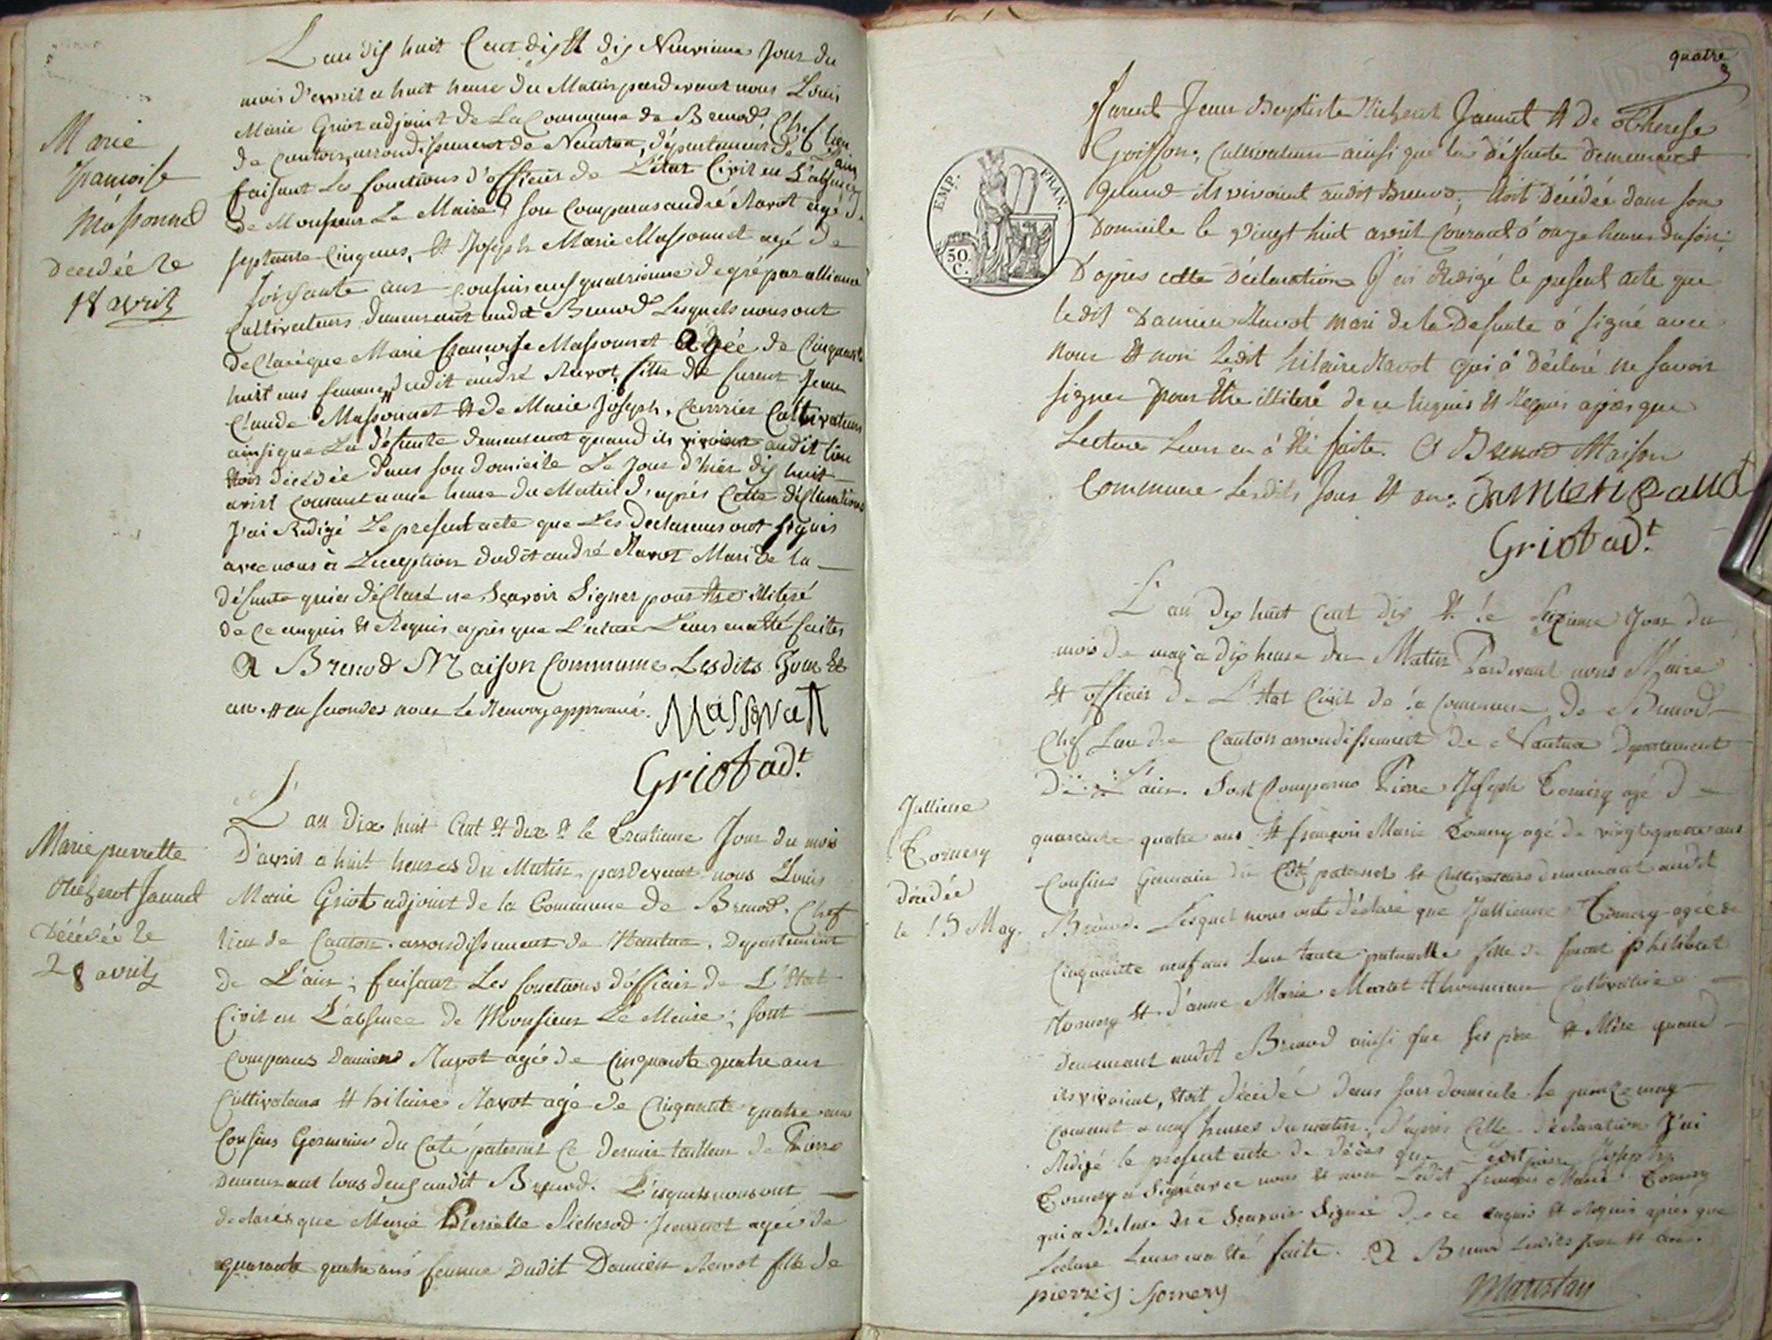 L'an dix huit Cent dix et dix Neuvieme Jour du
mois d'avril a huit heure du Matin pardevant nous Louis
Marie Griot adjoint de La Commune de Brenod Chef lieu
de Canton, arrondissement de Nantua, département de L'ain
faisant Les fonctions d'officier de L'état Civil en L'absence
de Monsieur Le Maire, Son Comparus andré Ravot agé de
septante Cinq ans, et Joseph Marie Massonnet agé de
soissante ans cousins au quatrieme degré par alliance
Cultivateurs demeurant audit Brenod Lesquels nous ont
déClaré que Marie françoise Massonnet agée de Cinquante
huit ans femme dudit andré Ravot, fille de furent Jean
Claude Massonnet et de Marie Joseph Cultivateurs
ainsi que La défunte demeurant quand ils vivoient audit lieu
étoit décédée dans son domicile Le Jour d'hier dix huit
avril Courant a une heure du Matin d'après Cette déClaration
J'ai Rédigé Le present acte que Les declarans ont signés
avec nous à L'exception dudit andré Ravot Mari de la
défunte qui a déClaré ne Sçavoir Signer pour être illiteré
de Ce enquis et Requis après que Lecture Leurs en a été faites
A Brenod Maison Commune Lesdits Jour et
an. et en secondes nous Le Renvoy approuvé. Massonnet
Griot adt.
Marie
françoise
Massonnet
décédée le
18 avril
L'an Dix huit Cent et dix et le trentieme Jour du mois
D'avril a huit heures du Matin pardevant nous Louis
Marie Griot adjoint de la Commune de Brenod. Chef
lieu de Canton. arrondissement de Nantua. Departement
de L'ain; faisant Les fonctions d'officier de L'état
Civil en L'absence de Monsieur Le Maire; sont
Comparus Damien Ravot agée de Cinquante quatre ans
Cultivateur et hilaire Ravot agé de Cinquante quatre ans
Cousins Germains du Coté paternel Ce dernier tailleur de Pierre
Demeurant tous deux audit Brenod. Lesquels nous ont
declarés que Marie Pierrette Richerod Jeannet agée de
quarante quatre ans femme Dudit Damien Ravot fille de
Marie pierrette
Richerot Jannet
Décédée le
28 avril
quatre
furent Jean Baptiste Richerot Jannet et De Therese
Goisson, Cultivateurs ainsi que la Défunte demeurant
quand ils vivoient audit Brenod, étoit Décédée dans son
Domicile le vingt huit avril Courant à onze heure du soir;
D'après cette Déclaration J'ai Rédigé le present acte que
ledit Damien Ravot mari de la Defunte à signé avec
nous et non Ledit hilaire Ravot qui à Déclaré ne savoir
signer pour être illiteré de ce enquis et Requis après que
Lecture Leurs en à été faite. A Brenod Maison
Commune Lesdits Jour et an: Damien Ravot
Griot adt.
EMP. FRAN.
50
C.
L'an dix huit Cent dix et le seizieme Jour du
mois de may a dix heure du Matin Pardevant nous Maire
et officier de L'état Civil de la Commune de Brenod
Chef Lieu de Canton arrondissement de Nantua departement
De L'ain. Sont Comparus Pierre Joseph Tornery agé de
quarante quatre ans et françois Marie Tornery agé de vingt quatre ans
Cousins Germain du Côté paternel et Cultivateurs demeurant audit
Brenod. Lesquels nous ont déclaré que Jullienne Tornery agée de
Cinquante neuf ans Leur tante paternelle fille de furent philibert
Tornery et d'anne Marie Cultivatrice
demeurant audit Brenod ainsi que ses père et Mère quand
ils vivoient, étoit décédée dans son domicile le quinze may
courant a neuf heures du matin. d'après Cette déclaration J'ai
Rédigé le present acte de Décès que Ledit pierre Joseph
Tornery a Signé avec nous et non Ledit françois Marie Tornery
qui a déclaré ne Sçavoir Signer de ce enquis et Requis après que
Lecture Leurs en a été faite. A Brenod Lesdits Jour et an.
pierre j. Tornery
Jullienne
Tornery
décédée
le 15 May.